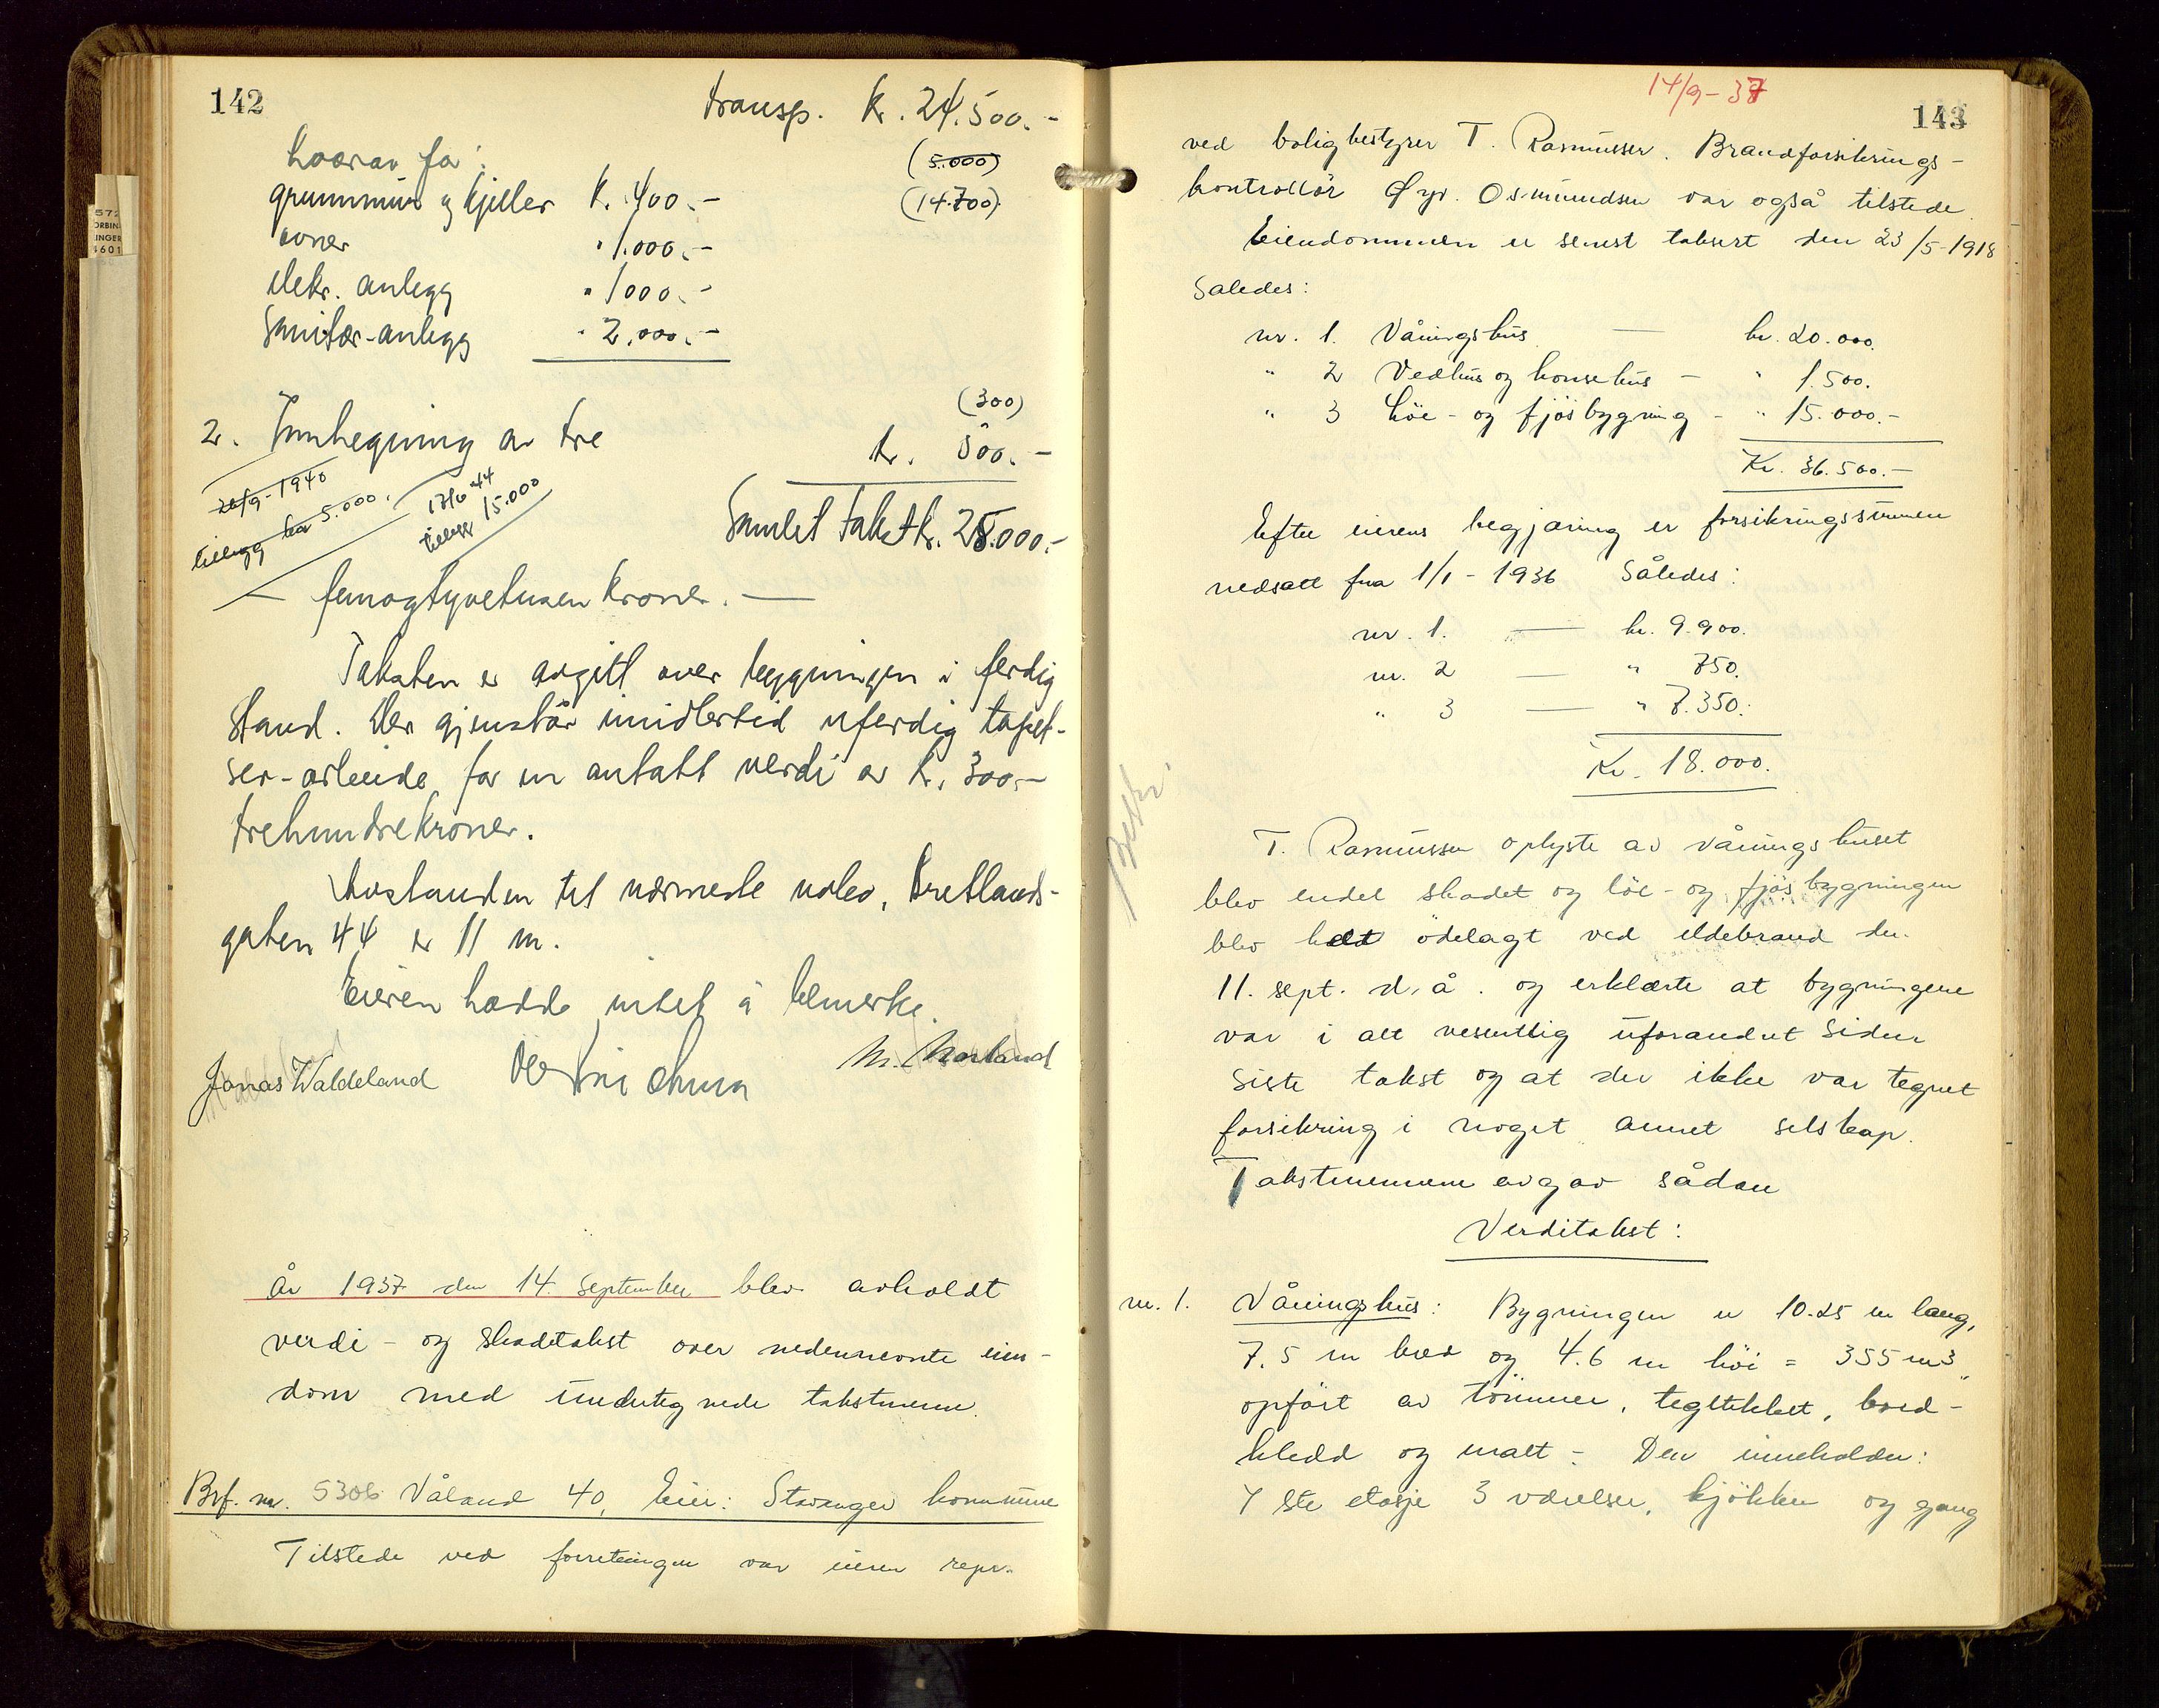 142
transp. Kr. 24.500.-
hvorav for:
(5.000)
grunnmur og kjeller Kr. 400.-
(14.700)
ovner " 1.000.-
elekr. anlegg " 1000.-
Sanitær-anlegg " 2.000.-
(300)
2. Innhegning av tre
kr. 500.-
26/9-1940
tillegg kr 5.000.
13/6 44
tillegg 15.000
Samlet takst kr. 25.000.-
— femogtyvetusen kroner. —
Taksten er avgitt over bygningen i ferdig
stand. Der gjenstår imidlertid uferdig tapet-
ser-arbeide for en antatt verdi av kr. 300.-
trehundrekroner.
Avstanden til nærmeste nabo, Bretlands-
gaten 44 er 11 m.
Eieren hadde intet å bemerke.
Jonas Waldeland
M. Norland
År 1937 den 14. september blev avholdt
verdi- og skadetakst over nedennevnte eien-
dom med undertegnede takstmenn.
Brf. nr. 530b Våland 40, Eier: Stavanger kommune
Tilstede ved forretningen var eieren repr.
14/9-37
143
ved boligbestyrer T. Rasmussen. Brandforsikrings-
kontrollör Øyv. Osmundsen var også tilstede.
Eiendommen er senest taksert den 23/5-1918
Således:
nr. 1. Våningshus — kr. 20.000.
" 2 Vedhus og honsehus — " 1.500.
" 3 Löe- og fjösbygning - " 15.000.-
Kr. 36.500.-
Efter eierens begjæring er forsikringssummen
nedsatt fra 1/1-1936 Således:
nr. 1. — kr. 9.900.
nr. 2 — " 750.
" 3 — " 7.350.
Kr. 18.000.
T. Rasmussen oplyste at våningshuset
blev endel skadet og löe- og fjösbygningen
blev helt ödelagt ved ildebrand den
11. sept. d. å. og erklærte at bygningene
var i alt vesentlig uforandret siden
siste takst og at der ikke var tegnet
forsikring i noget annet selskap.
Takstmennene avgav sådan
Verditakst:
nr. 1. Våningshus: Bygningen er 10.25 m lang,
7.5 m bred og 4.6 m höi = 355 m3
opfört av tömmer, teglteket, bord-
kledd og malt - Den inneholder:
1 ste etasje 3 værelser, kjökken og gang